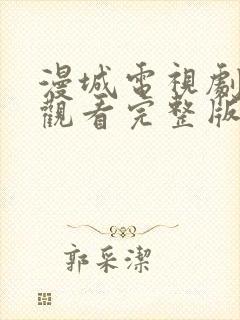 漫城電視劇
觀看完整版
郭采潔